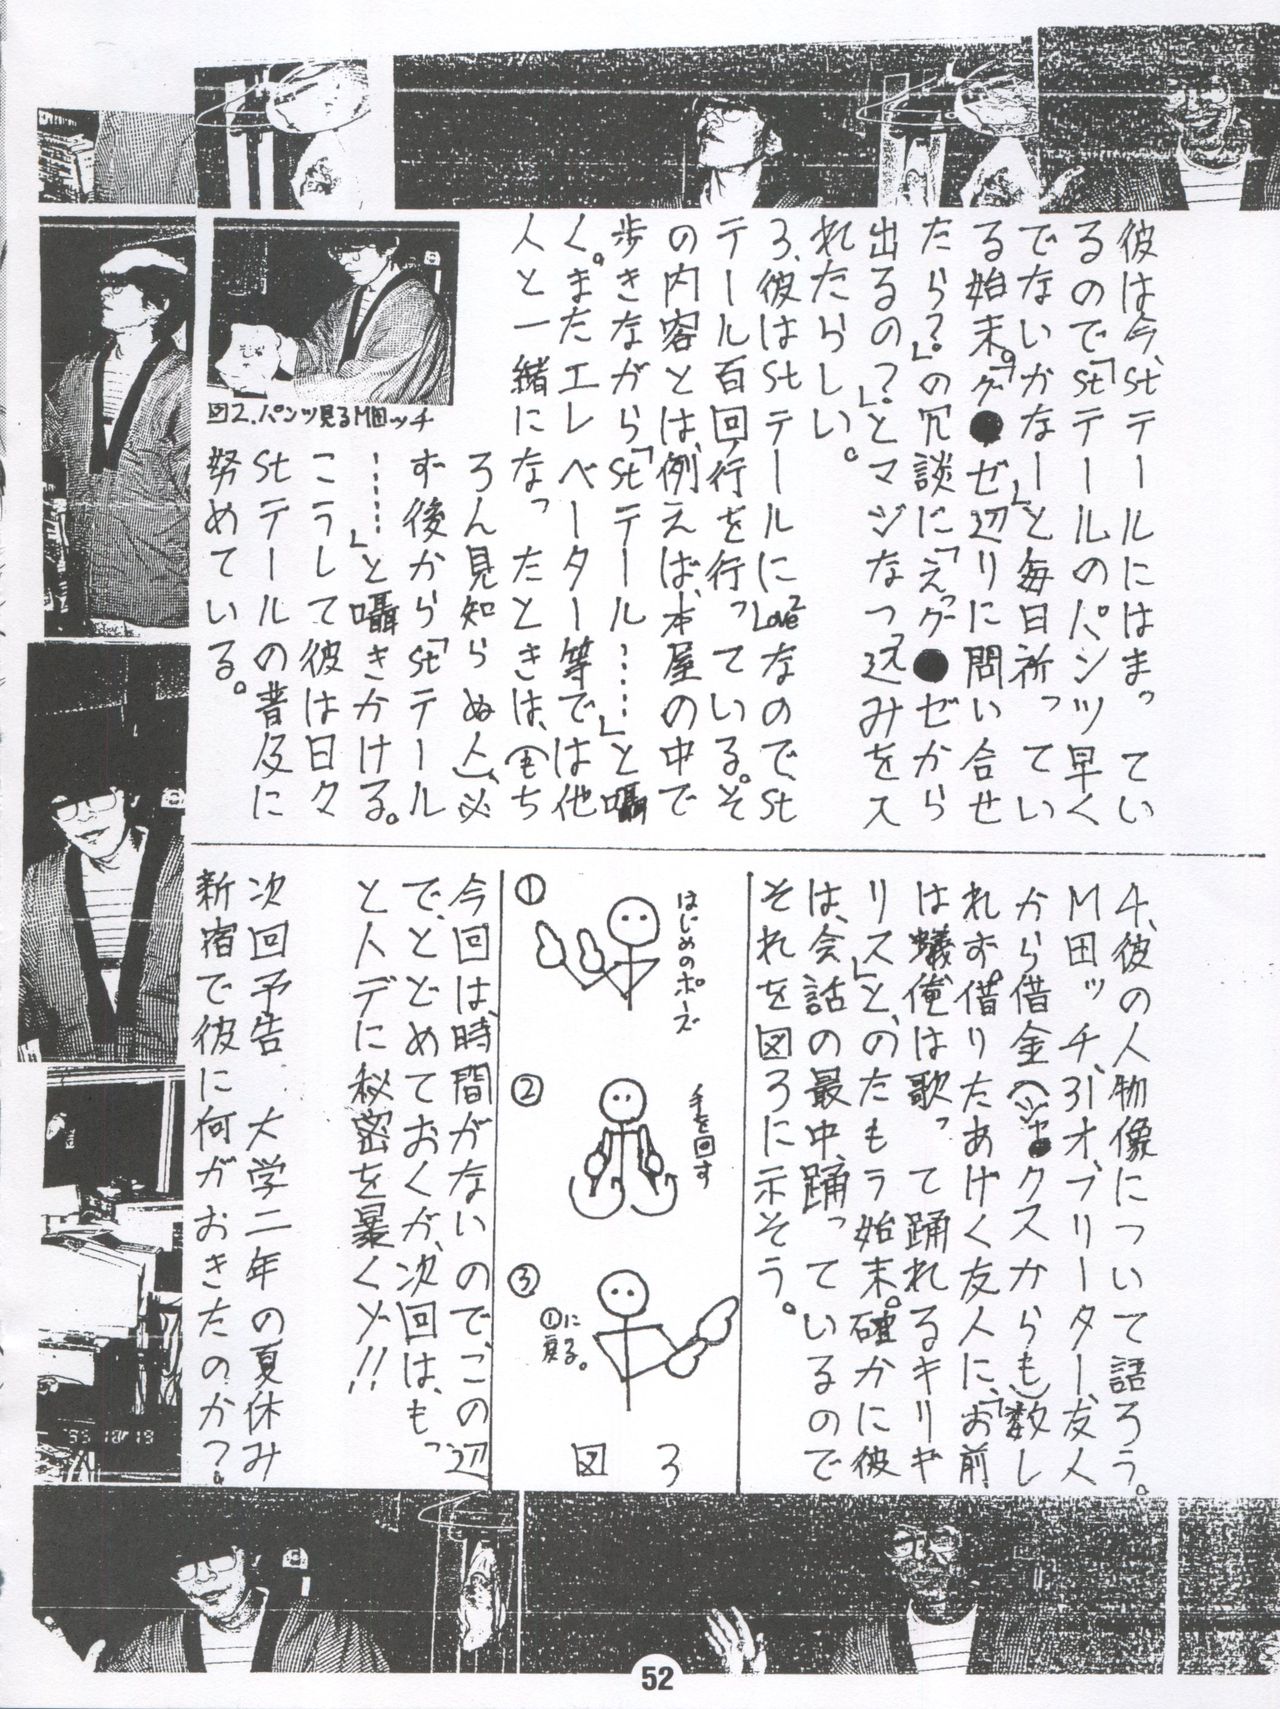 彼は今、Stテールにはまってい
るので「Stテールのパンツ早く
でないかなー」と毎日祈ってい
る始末。「グ●ゼ辺りに問い合せ
たら?」の冗談に「えっグ●ゼから
出るの?」とマジなつっ込みを入
れたらしい。
3、彼はStテールにLove2なのでSt
テール百回行を行っている。そ
の内容とは、例えば、本屋の中で
歩きながら「Stテール……」と囁
く。またエレベーター等では他
人と一緒になったときは、(もち
ろん見知らぬ人)、必
ず後から「Stテール
……」と囁きかける。
こうして彼は日々
Stテールの普及に
努めている。
図2.パンツ見るM田ッチ
4、彼の人物像について語ろう。
M田ッチ、31才、フリーター、友人
から借金(ジャ●クスからも)数し
れず借りたあげく友人に、「お前
は蟻俺は歌って踊れるキリギ
リス」と、のたもう始末。確かに彼
は、会話の最中、踊っているので
それを図3に示そう。
①
はじめのポーズ
②
手を回す
③
①に
戻る。
図 3
今回は、時間がないのでこの辺
で、とどめておくが、次回は、もっ
と人デに秘密を暴くゾ!!
次回予告 大学二年の夏休み
新宿で彼に何がおきたのか?
'95 10 19
52